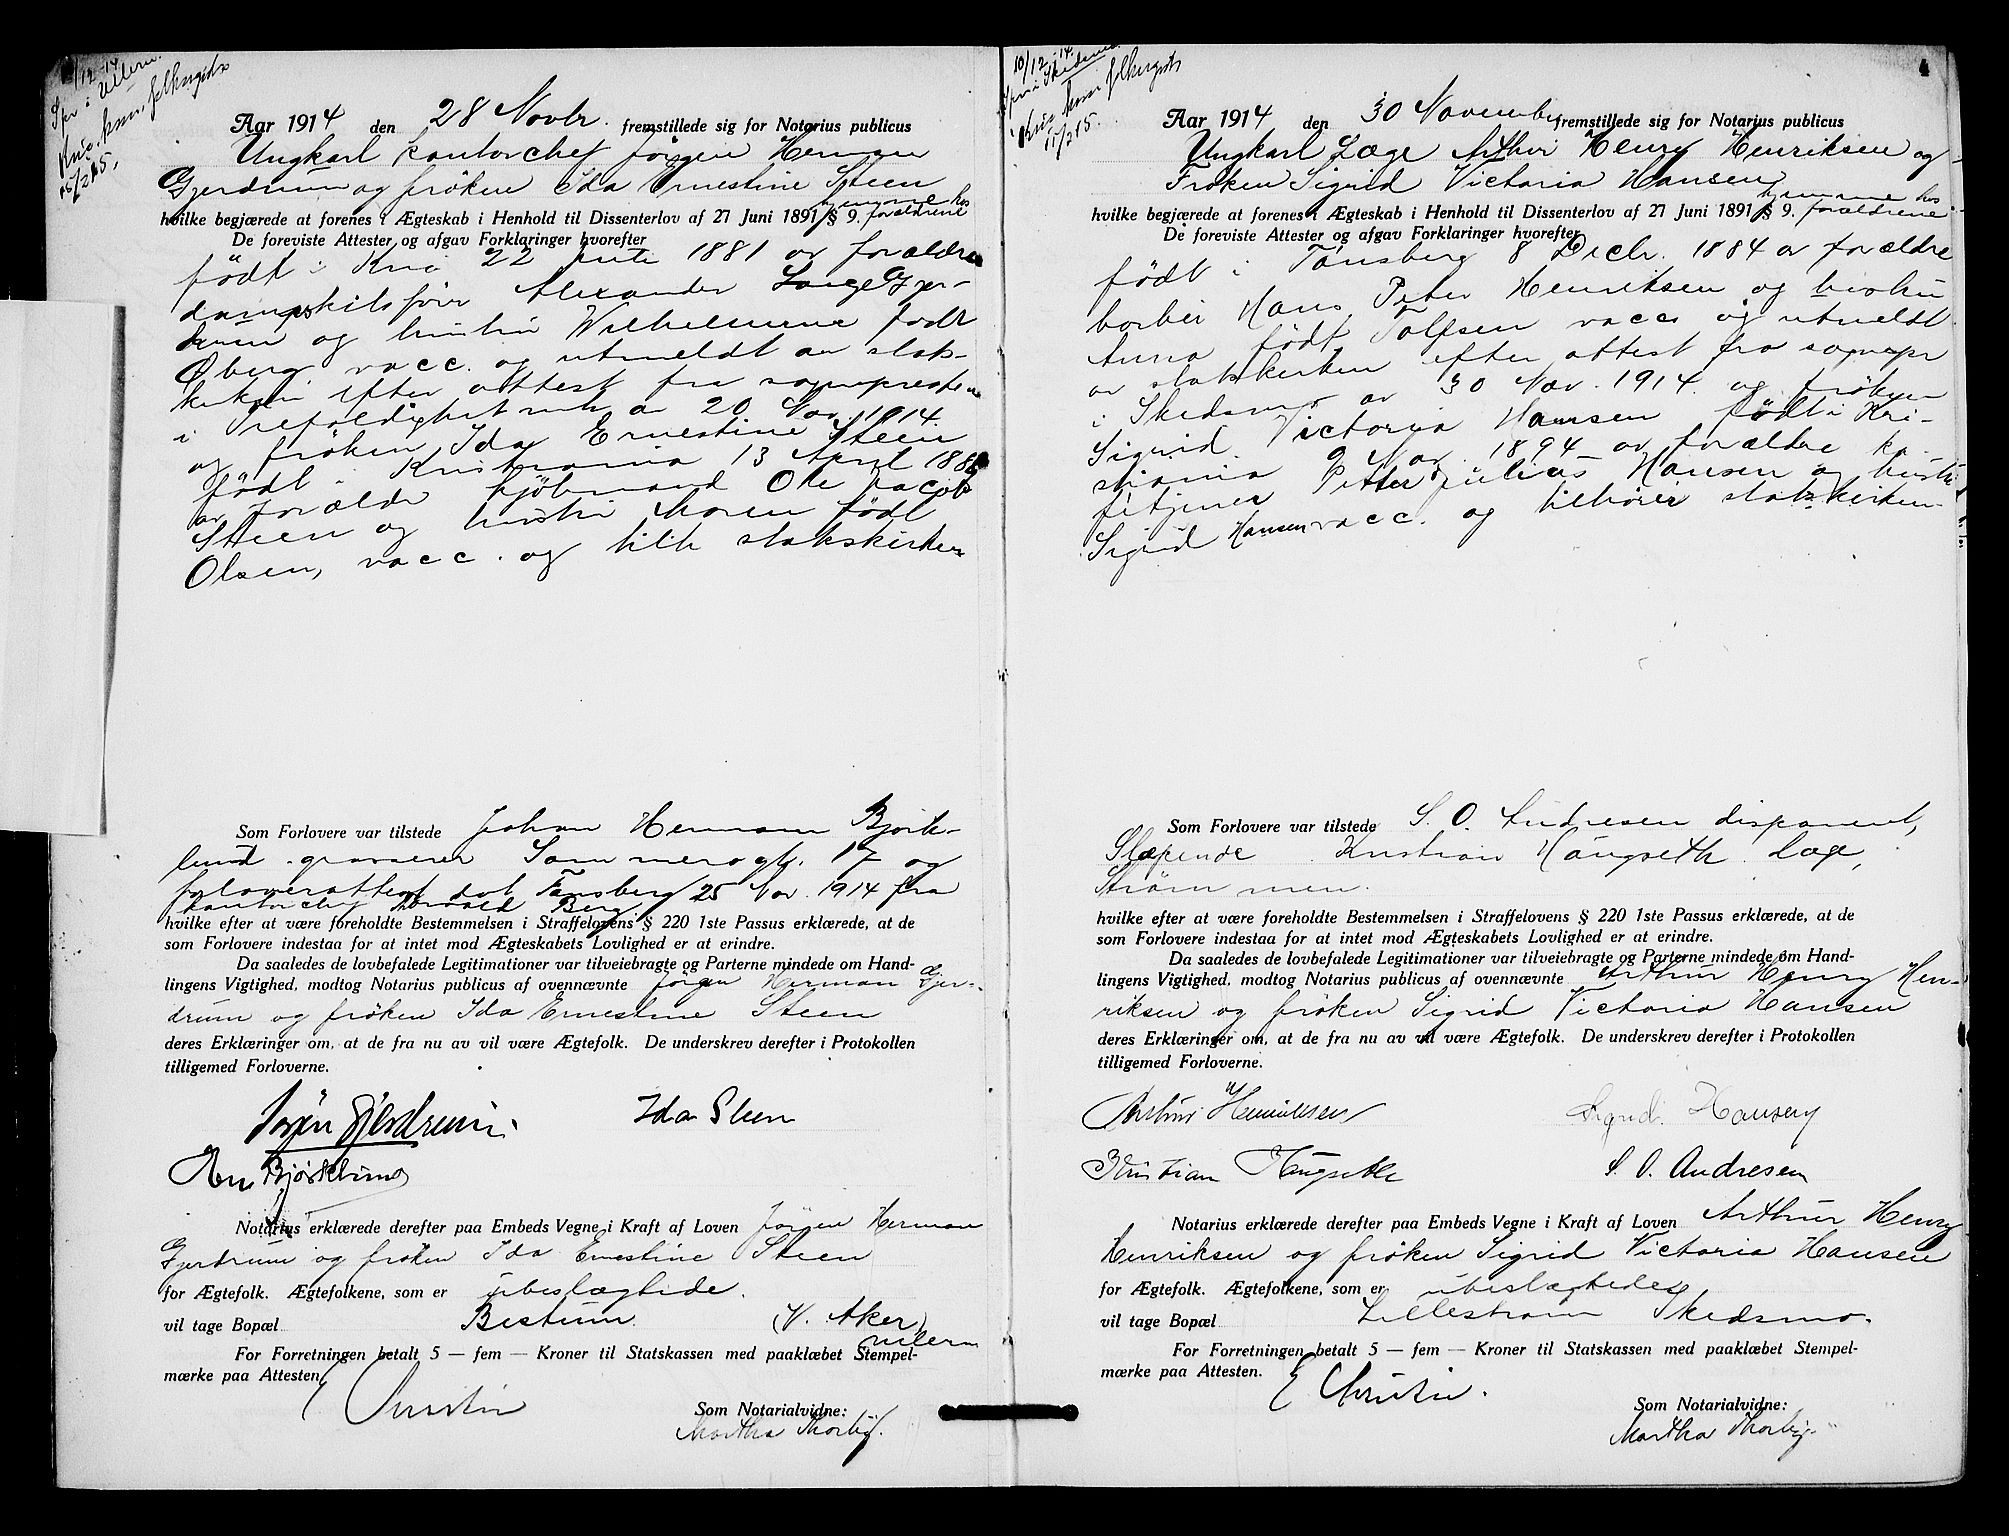 /12-14
Spr i Ullern.
Kria. kom. folkregister
15/2 15.
Aar 1914 den 28 Novbr. fremstillede sig for Notarius publicus
Ungkarl kontorchef Jörgen Herman
Gjerdrum og fröken Ida Ernestine Steen
hjemme hos
hvilke begjærede at forenes i Ægteskab i Henhold til Dissenterlov af 27 Juni 1891 § 9. forældrene
De foreviste Attester og afgav Forklaringer hvorefter
födt i Kria 22 1881 av forældre
dampskibsförer Alexander Lange Gjer-
drum og hustru Wilhelmine födt
Öberg vacc. og utmeldt av stats-
kirken efter attest fra sognepresten
i Trefoldighet mh av 20 Nov. 1914
og fröken Ida Ernestine Steen
födt i Kristiania 13 April 188
av forældre kjöbmand Ole Jacob
Steen og hustru Maren födt
Olsen, vacc. og tilh statskirken
Som Forlovere var tilstede Johan Hermann Björk-
lund grosserer Sommerogt. 17 og
forloverattest dat Tønsberg 25 Nov. 1914 fra
kontorchef Berg
hvilke efter at være foreholdte Bestemmelsen i Straffelovens § 220 1ste Passus erklærede, at de
som Forlovere indestaa for at intet mod Ægteskabets Lovlighed er at erindre.
Da saaledes de lovbefalede Legitimationer var tilveiebragte og Parterne mindede om Hand-
lingens Vigtighed, modtog Notarius publicus af ovennævnte Jörgen Herman Gjer-
drum og fröken Ida Ernestine Steen
deres Erklæringer om, at de fra nu av vil være Ægtefolk. De underskrev derefter i Protokollen
tilligemed Forloverne.
Jörgen Gjerdrum. Ida Steen
Björklund
Notarius erklærede derefter paa Embeds Vegne i Kraft af Loven Jörgen Herman
Gjerdrum og fröken Ida Ernestine Steen
for Ægtefolk. Ægtefolkene, som er ubeslægtede.
vil tage Bopæl Bestum (V. Aker)
Ullern
For Forretningen betalt 5 — fem — Kroner til Statskassen med paaklæbet Stempel-
mærke paa Attesten.
Som Notarialvidne:
Martha Thorby.
4
10/12-14.
Spr i Skedsmo
Kria kom folkregister
15/2 15.
Aar 1914 den 30 November fremstillede sig for Notarius publicus
Ungkarl Læge Arthur Henry Henriksen og
Fröken Sigrid Victoria Hansen
hjemme hos
hvilke begjærede at forenes i Ægteskab i Henhold til Dissenterlov af 27 Juni 1891 § 9. forældrene
De foreviste Attester og afgav Forklaringer hvorefter
födt i Tönsberg 8 Decbr. 1884 av forældre
barber Hans Peter Henriksen og hustru
Anna födt Tolfsen vacc og utmeldt
av statskirken efter attest fra sognepr
i Skedsmo av 30 Nov. 1914 og fröken
Sigrid Victoria Hansen födt i Kri-
stiania 9 Nov. 1894 av forældre
Petter Julius Hansen og hustru
Sigrid Hansen vacc. og tilhörer statskirken.
Som Forlovere var tilstede S. O. Andresen disponent,
Slæpende Kristian Haugseth læge,
Strömmen.
hvilke efter at være foreholdte Bestemmelsen i Straffelovens § 220 1ste Passus erklærede, at de
som Forlovere indestaa for at intet mod Ægteskabets Lovlighed er at erindre.
Da saaledes de lovbefalede Legitimationer var tilveiebragte og Parterne mindede om Hand-
lingens Vigtighed, modtog Notarius publicus af ovennævnte Arthur Henry Hen-
riksen og fröken Sigrid Victoria Hansen
deres Erklæringer om, at de fra nu av vil være Ægtefolk. De underskrev derefter i Protokollen
tilligemed Forloverne.
Arthur Henriksen Sigrid Hansen
Kristian Haugseth S. O. Andresen
Notarius erklærede derefter paa Embeds Vegne i Kraft af Loven Arthur Henry
Henriksen og fröken Sigrid Victoria Hansen
for Ægtefolk. Ægtefolkene, som er ubeslægtede
vil tage Bopæl Lillestrøm Skedsmo.
For Forretningen betalt 5 — fem — Kroner til Statskassen med paaklæbet Stempel-
mærke paa Attesten. E Christie.
Som Notarialvidne:
Martha Thorby.